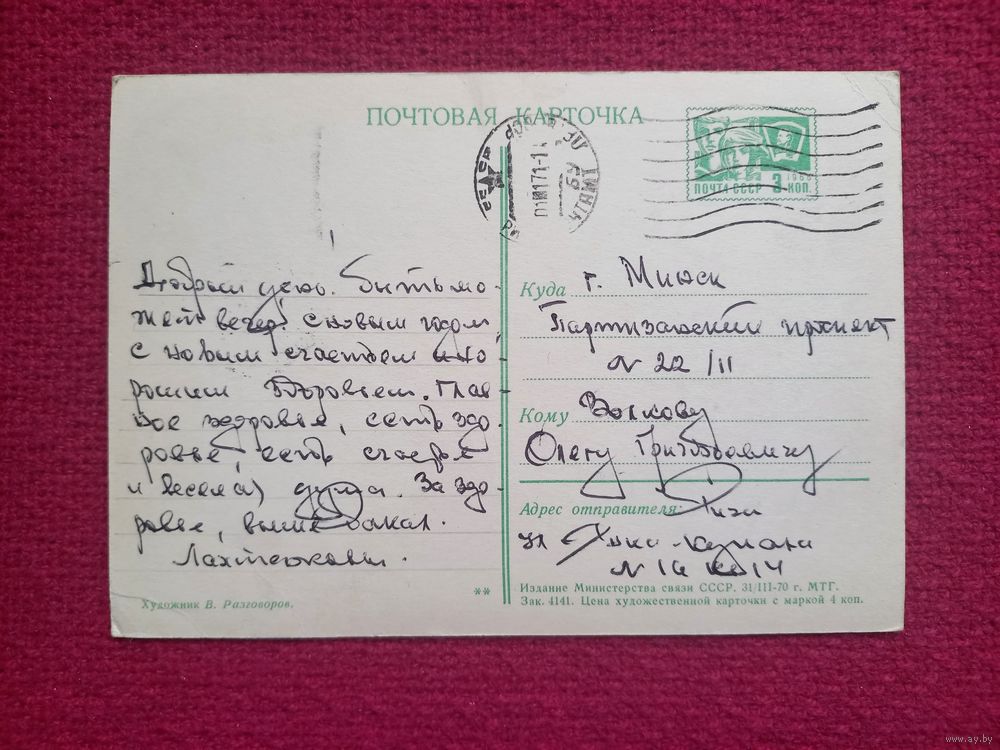 ПОЧТОВАЯ КАРТОЧКА
ПОЧТА СССР 3 КОП.
1966
Добрый день. Быть мо-
жет вечер. С новым годом,
с новым счастьем и хо
рошим здоровьем. Глав
ное здоровье, есть здо
ровье, есть счастье
и весела душа. За здо-
ровье, выше бокал.
Куда г. Минск
Партизанский проспект
N 22/11
Кому Волкову
Олегу Григорьевичу
Адрес отправителя: Рига
ул
N 1а кв 14
Художник В. Разговоров.
**
Издание Министерства связи СССР. 31/III-70 г. МТГ.
Зак. 4141. Цена художественной карточки с маркой 4 коп.
www.ay.by